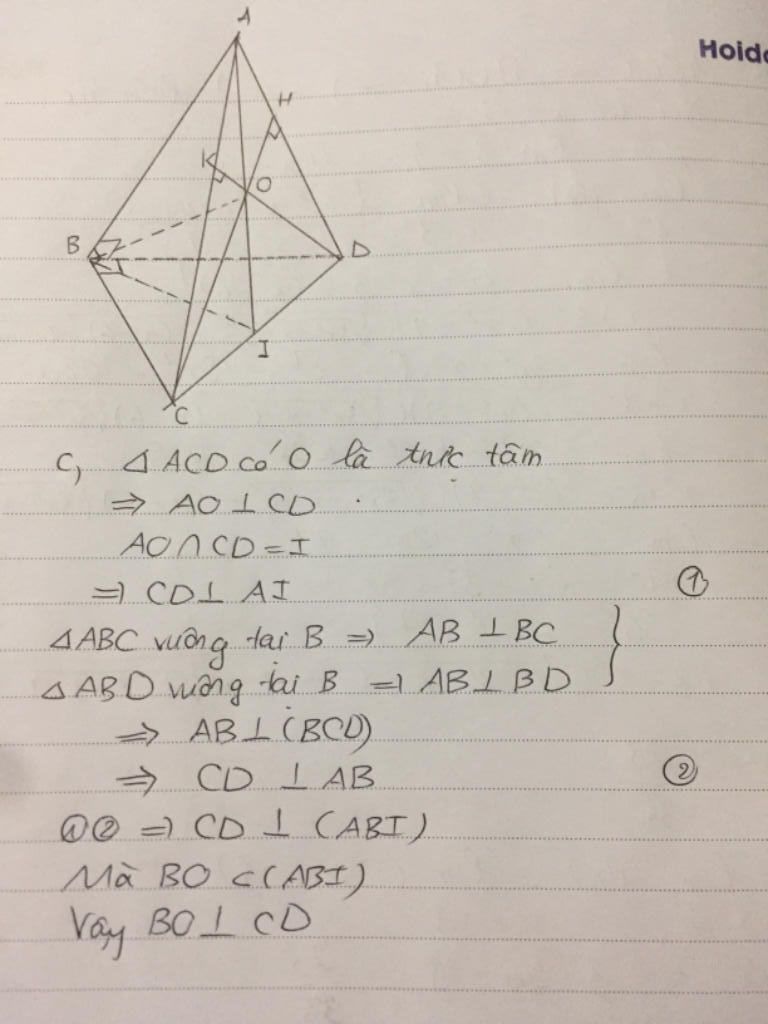 Hoidc
A
H
K
O
B
D
I
C
C, △ ACD có O là trực tâm
⇒ AO ⊥ CD .
AO ∩ CD = I
⇒ CD ⊥ AI ①
△ABC vuông tại B ⇒ AB ⊥ BC }
△ABD vuông tại B ⇒ AB ⊥ BD
⇒ AB ⊥ (BCD)
⇒ CD ⊥ AB ②
①② ⇒ CD ⊥ (ABI)
Mà BO ⊂ (ABI)
Vậy BO ⊥ CD